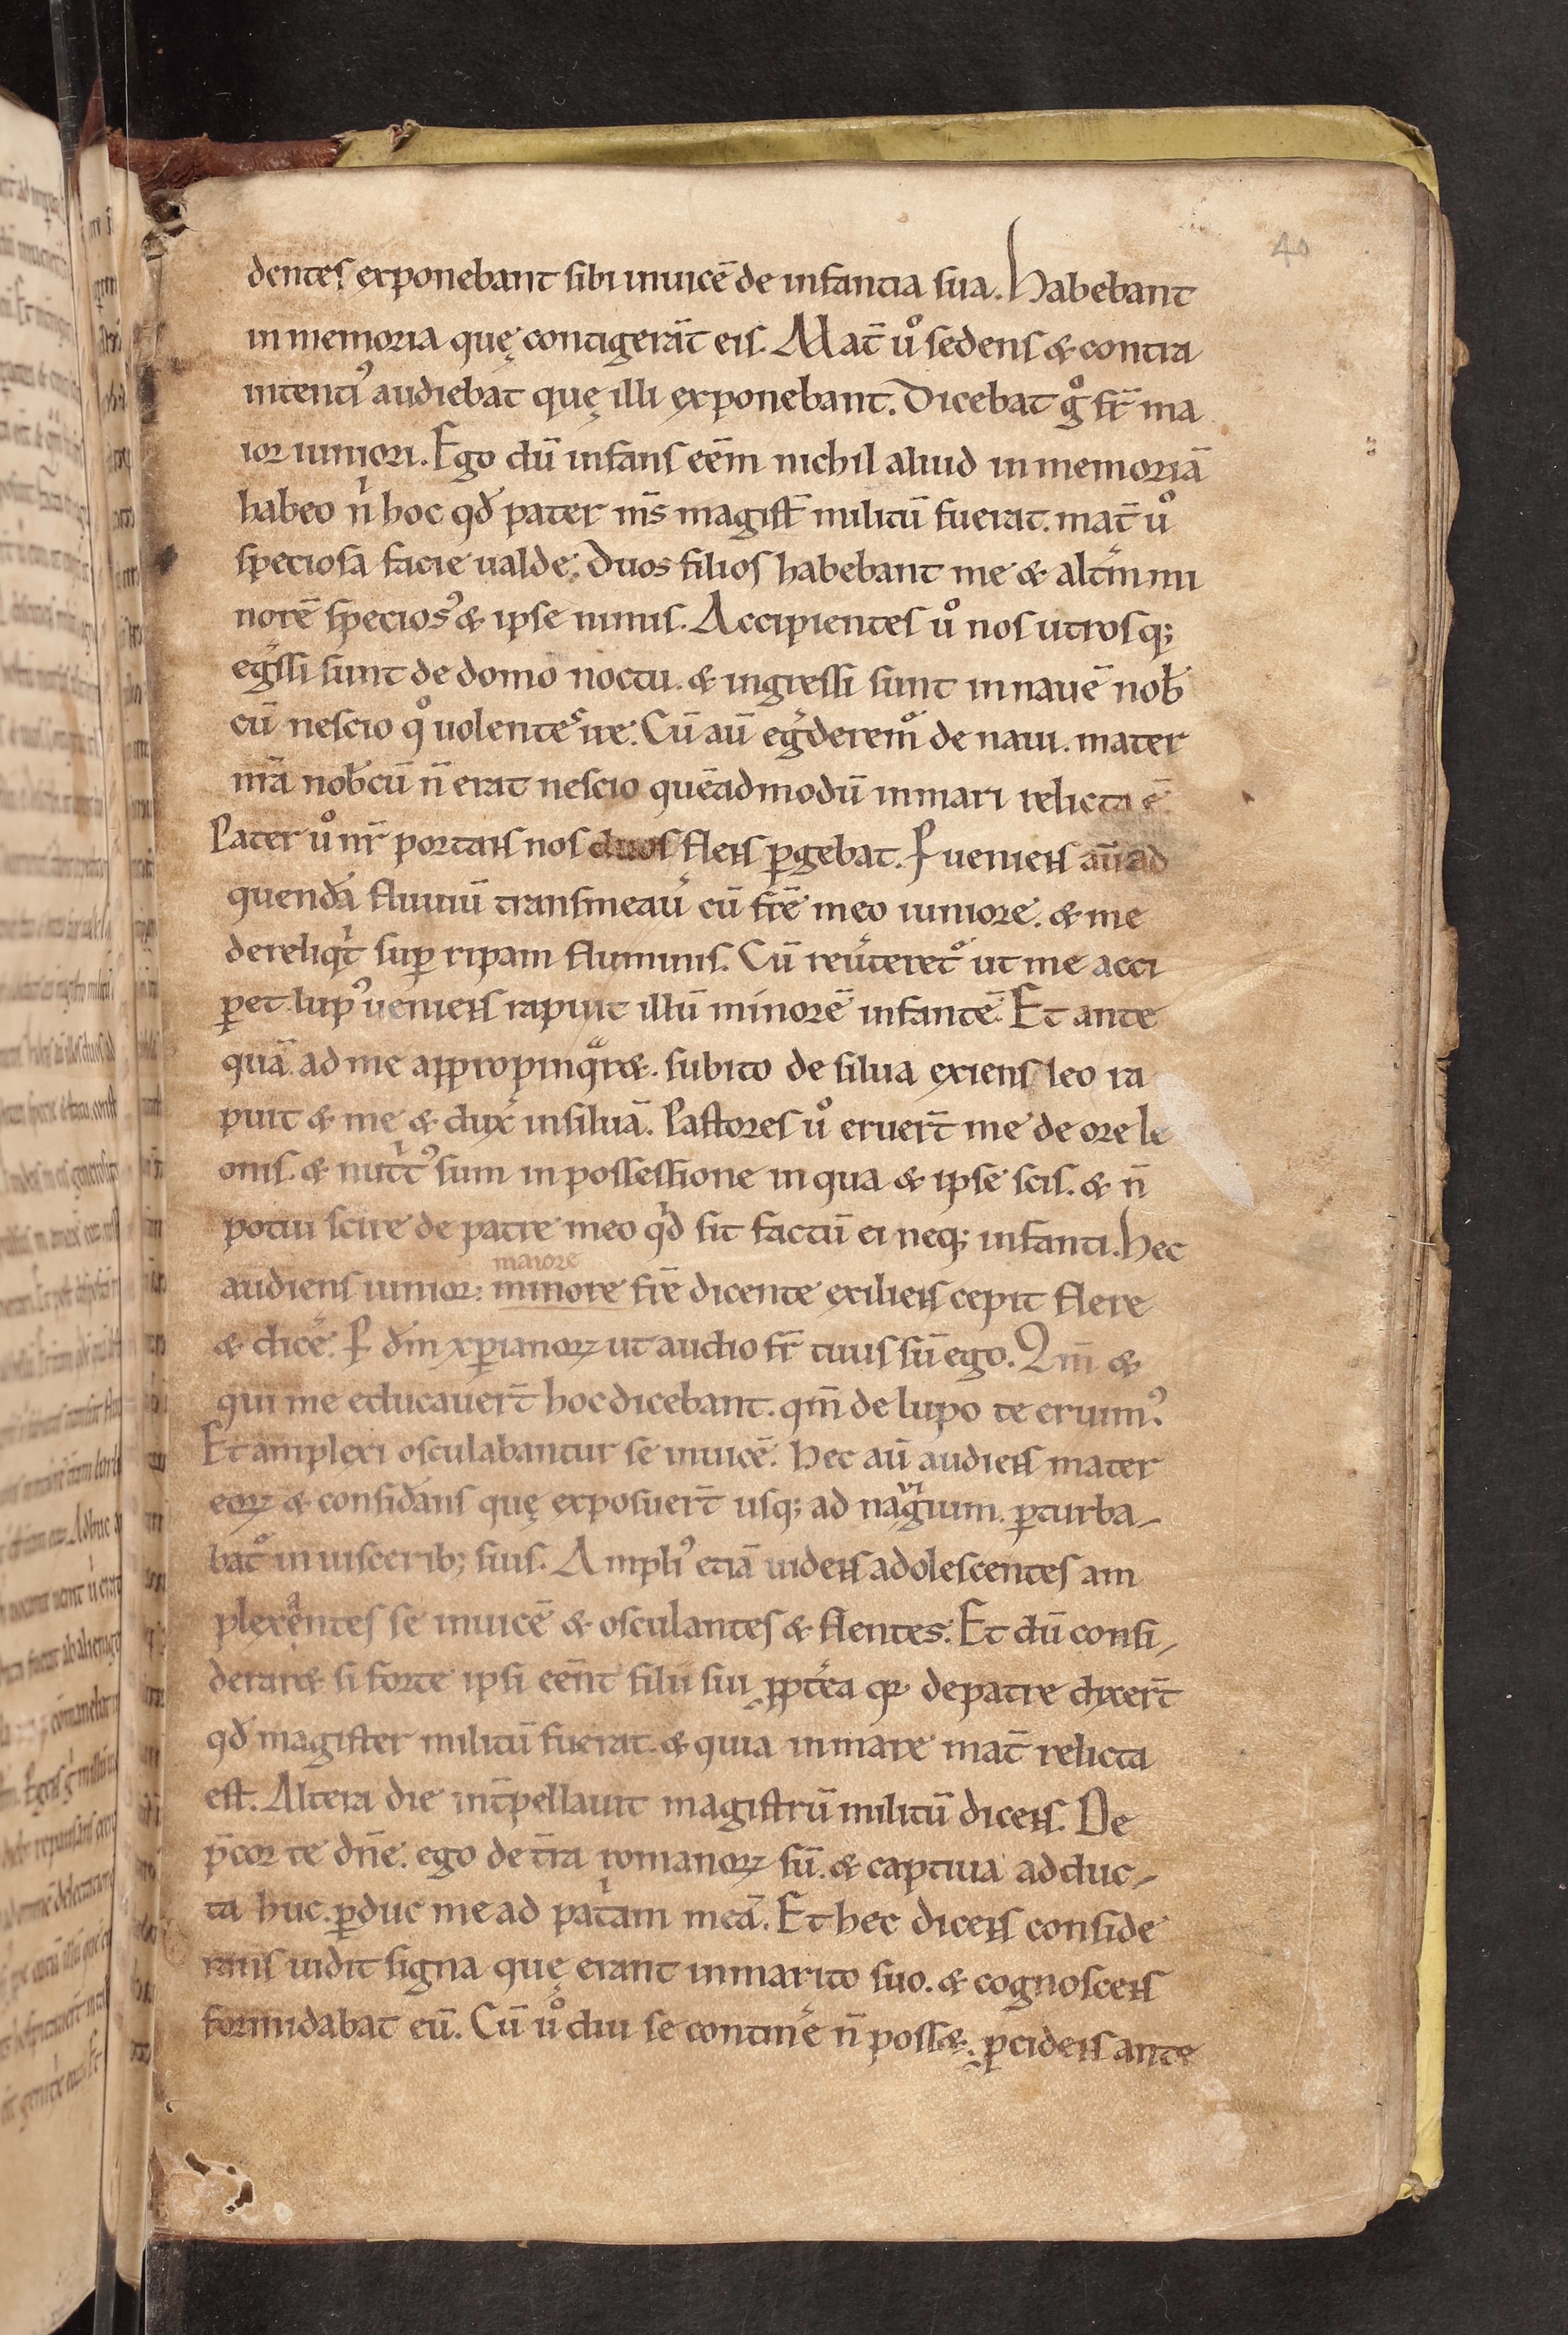 40
dentes exponebant sibi inuicē de infantia sua. Habebant
in memoria quę contigerāt eis. Mat̄ uͦ sedens & contra
intentꝰ audiebāt quę illi exponebant. Dicebat gͦ fr̄ ma
ior iuniori. Ego dū infans eēm nichil aliud in memoriā
habeo nͥ hoc qđ pater m̄s magist̄ militū fuerat. mat̄ uͦ
speciosa facie ualde. Duos filios habebant me & altm̄ mi
norē speciosꝰ & ipse nimis. Accipientes uͦ nos utrosq;
eg̓ssi sunt de domo noctu. & ingressi sunt in nauē nob̄
cū nescio qͦ uolentes ire. Cū aū eg̓deremꝰ de naui. mater
nr̄a nob̄cū n̄ erat nescio quēadmodū in mari relicta ē.
Pater uͦ nr̄ portans nos duos flens ꝑgebat. Ꝑueniens aū ad
quendā fluuiū transmeau̓ cū fr̄e meo iuniore. & me
dereliqͥt suꝑ ripam fluminis. Cū reu̓teret᷑ ut me acci
ꝑet lupꝰ ueniens rapuit illū minorē infantē. Et ante
quā ad me appropinqͣr&. subito de silua exiens leo ra
puit & me & dux̓ in siluā. Pastores uͦ eruert̄ me de ore le
onis. & nutͥtꝰ sum in possessione in qua & ipse scis. & n̄
potui scire de patre meo qͥd sit factū ei neq; infanti. Hec
maiore
audiens iunior: minore fr̄e dicente exiliens cepit flere
& dice̓. Ꝑ dm̄ xp̄ianoꝝ ut audio fr̄ tuus sū ego. Qm̄ &
qui me educauert̄ hoc dicebant. qm̄ de lupo te eruimꝰ.
Et amplexi osculabantur se inuicē. Hec aū audiens mater
eoꝝ & considān̄s quę exposuert̄ usq; ad naͧgium. ꝑturba-
bat᷑ in uisceribꝫ suis. Ampliꝰ etiā uidens adolescentes am
plexͣntes se inuicē & osculantes & flentes. Et dū consi-
derar& si forte ipsi eēnt filii sui ꝓpt̓ea qꝛ de patre dixert̄
qđ magister militū fuerat. & quia in mare mat̄ relicta
est. Altera die int̄pellauit magistrū militū dicens. De
p̄cor te dn̄e. ego de t̄ra romanoꝝ sū. & captiua adduc-
ta huc. ꝑduc me ad patͥam meā. Et hec dicens conside
rans uidit signa quę erant in marito suo. & cognoscens
formidabat eū. Cū uͦ diu se contine̓ n̄ poss&. ꝓcidens ante